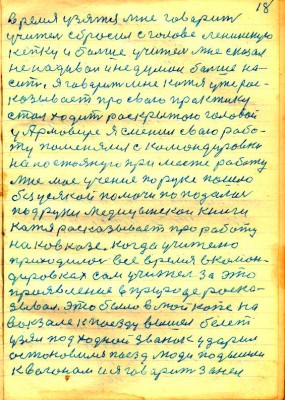 18
время узятя мне говарит
учител сбросил с голове ленинскую
кепку и больше учител мне сказал
не надивай и не думай больше на-
сить, я говарит мне Катя уже рос-
казывает про сваю практику
стал ходит роскрытою головой
у Армовире я сменил сваю рабо-
ту поменял с командировки
на постояную при месте работу
мне мое учение по руке пошло
без усякой помочи по подаче
под руки Медицынской книги
Катя росказывает про работу
на Ковказе. когда учителю
приходилос все время в коман-
дировках сам учител за это
проявление в природе роска-
зывал. Это было в мой Катя на
вокзале к поезду вышел белет
узял под ходной званок ударил
остоновился поезд люди подышли
к вагонам и я говарит занел